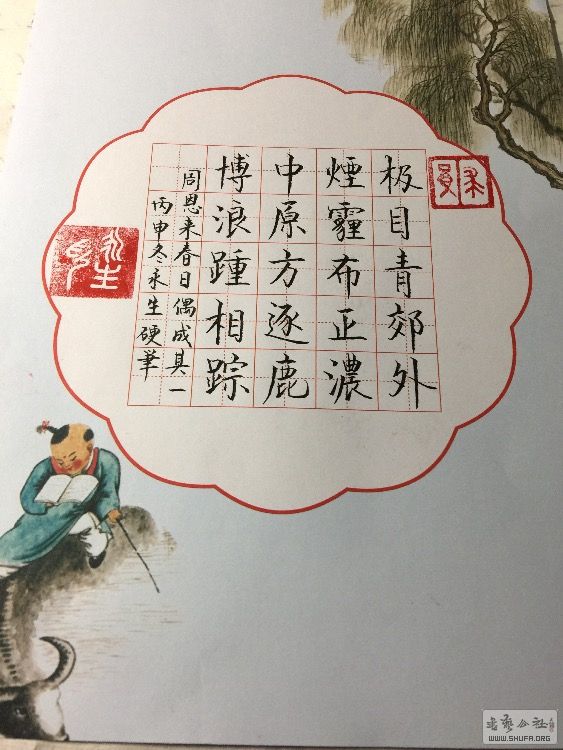 极目青郊外
煙霾布正濃
中原方逐鹿
博浪踵相踪
周恩来春日偶成其一
丙申冬永生硬筆
永生
书艺公社
WWW.SHUFA.ORG